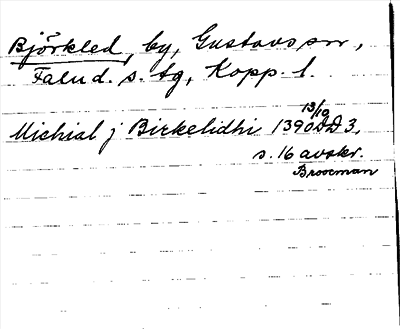 Björkled, by, Gustavs sn,
Falu d. s. tg, Kopp. l.
Michial j Birkelidhi 1390 13/10 DD 3,
s. 16 avskr.
Broocman